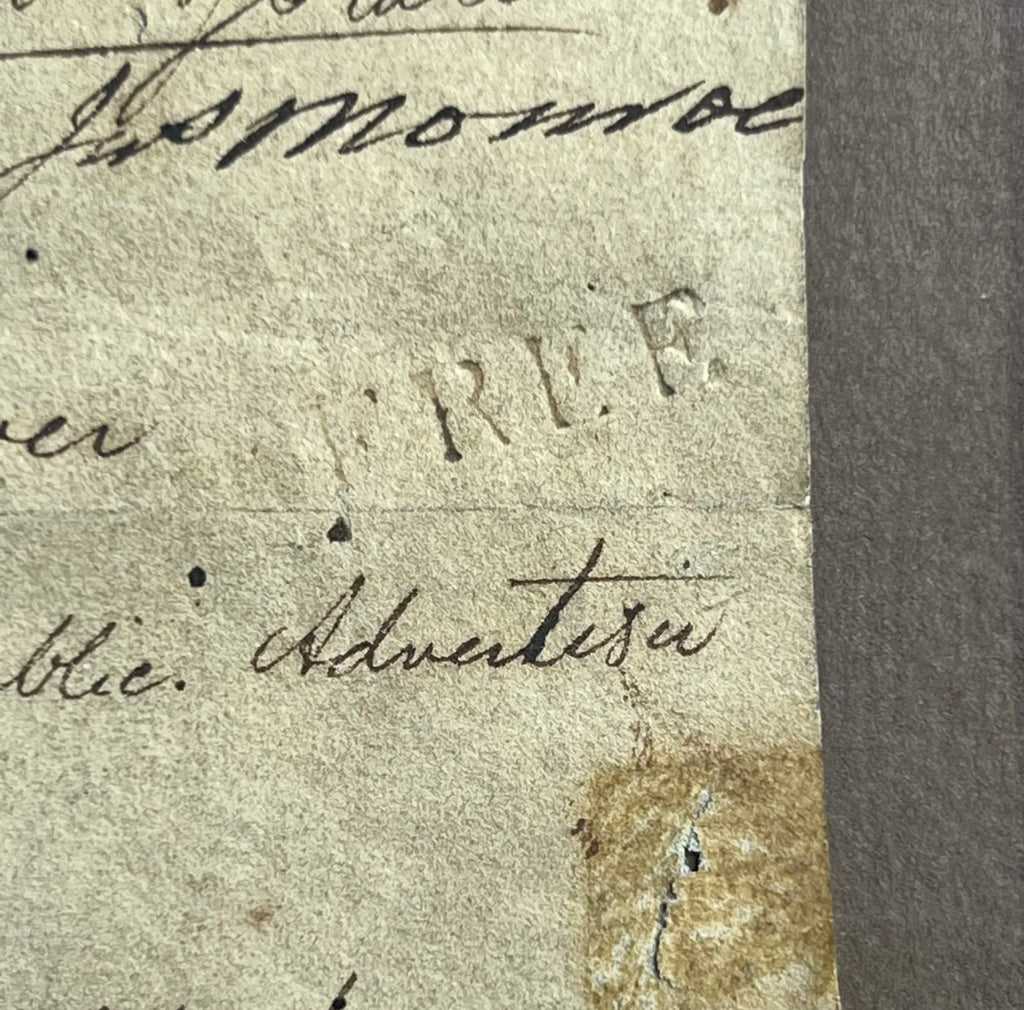 Jas Monroe
FREE.
ver
blic. Advertiser